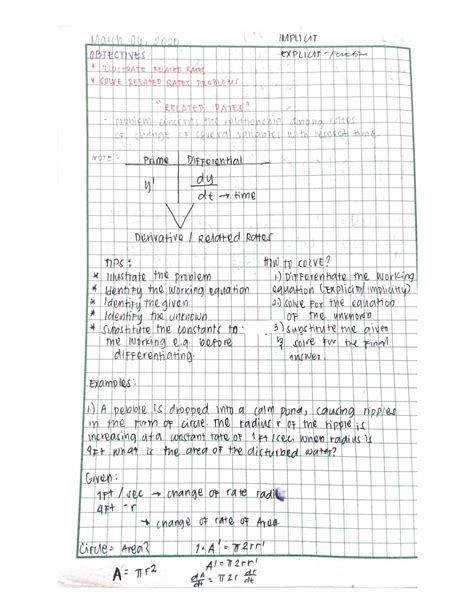 March 06, 2020
IMPLICIT
OBJECTIVES
EXPLICIT - Function
* ILLUSTRATE RELATED RATES
* SOLVE RELATED RATES PROBLEMS
"RELATED RATES"
- problem concerns the relationship among rates
of change of several variables with respect time.
NOTE: Prime Differential
y' dy
dt → time
Derivative / Related Rates
TIPS:
* Illustrate the problem
* Identify the working equation
* Identify the given
* Identify the unknown
* Substitute the constants to
the working e.q. before
differentiating.
HOW TO SOLVE?
1) Differentiate the working
equation (explicitly/implicitly)
2) solve for the equation
of the unknown
3) substitute the given
& solve for the final
answer.
Examples:
1.) A pebble is dropped into a calm pond, causing ripples
in the form of circle. The radius r of the ripple is
increasing at a constant rate of 1ft/sec. when radius is
4ft what is the area of the disturbed water?
Given:
1ft/sec → change of rate radi
4ft - r
→ change of rate of Area.
Circle = Area?
A = πr²
1·A' = π2rr'
A' = π2rr'
dA/dt = π2r dr/dt